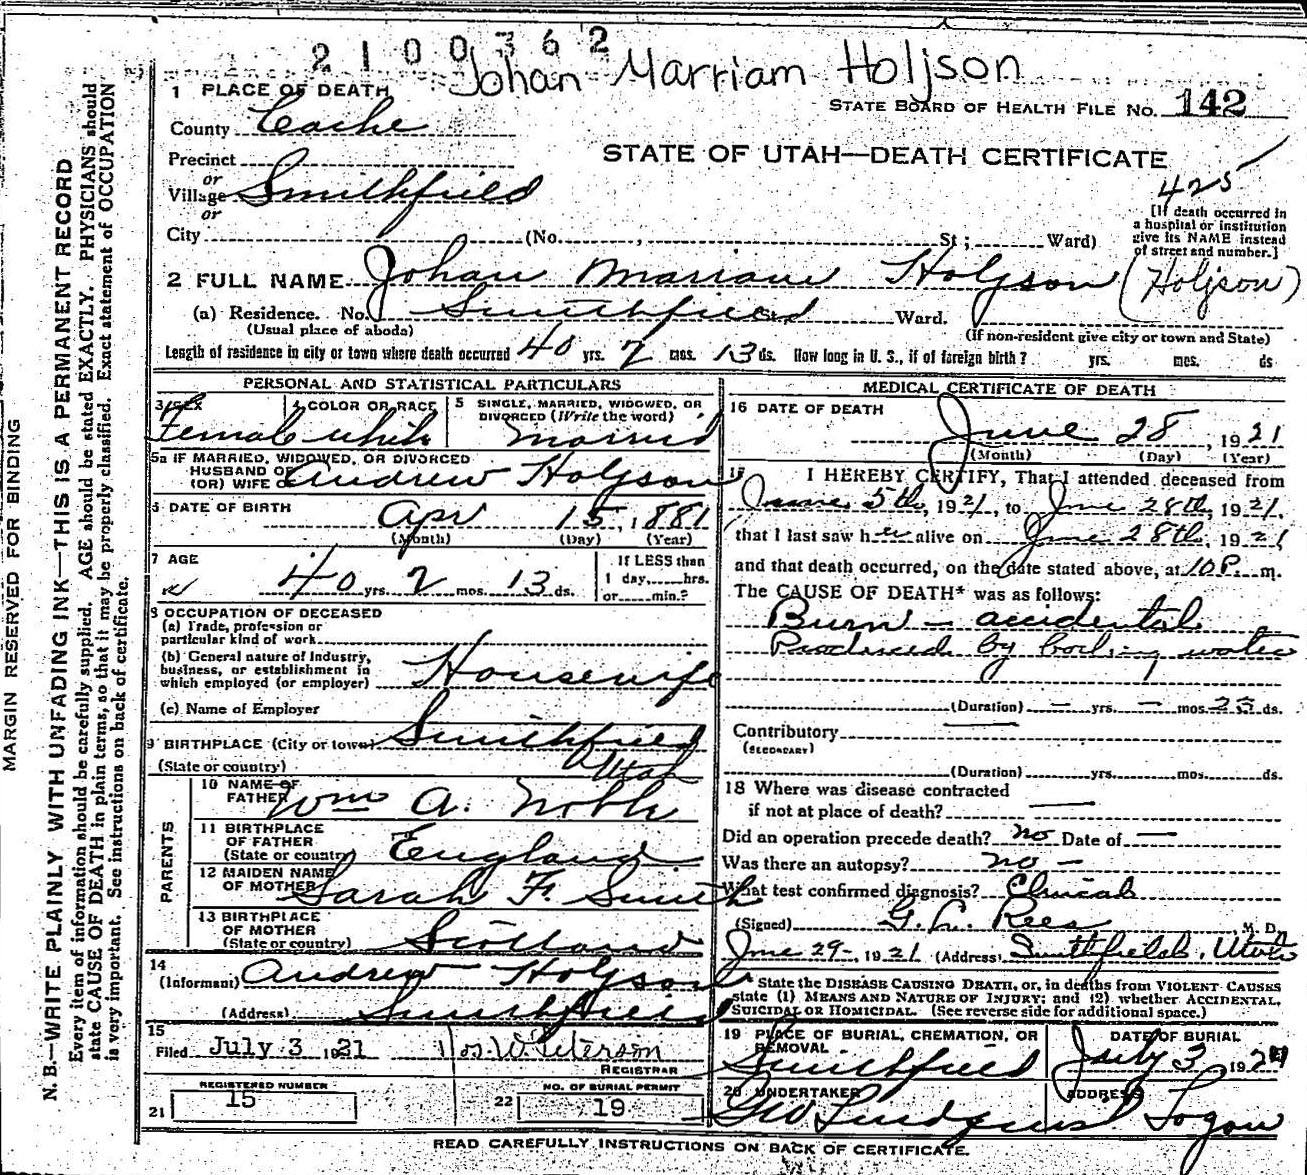 2100362
Johan Marriam Holjson
1 PLACE OF DEATH
STATE BOARD OF HEALTH FILE No. 142
County Cache
STATE OF UTAH—DEATH CERTIFICATE
Precinct
or
Village Smithfield
or
City (No. , St; Ward)
425
[If death occurred in
a hospital or institution
give its NAME instead
of street and number.]
2 FULL NAME Johan Marriam Holjson (Holjson)
(a) Residence. No. Smithfield Ward.
(Usual place of aboda) (If non-resident give city or town and State)
Length of residence in city or town where death occurred 40 yrs. 2 mos. 13 ds. How long in U. S., if of foreign birth? yrs. mes. ds
PERSONAL AND STATISTICAL PARTICULARS
3 SEX 4 COLOR OR RACE 5 SINGLE, MARRIED, WIDOWED, OR
DIVORCED (Write the word)
Female white Married
5a IF MARRIED, WIDOWED, OR DIVORCED
HUSBAND OF
(OR) WIFE OF Andrew Holjson
6 DATE OF BIRTH
Apr 15, 1881
(Month) (Day) (Year)
7 AGE If LESS than
40 yrs. 2 mos. 13 ds. 1 day, hrs.
or min.?
8 OCCUPATION OF DECEASED
(a) Trade, profession or
particular kind of work
(b) General nature of Industry,
business, or establishment in
which employed (or employer) Housewife
(c) Name of Employer
9 BIRTHPLACE (City or town) Smithfield
(State or country) Utah
PARENTS
10 NAME OF
FATHER Wm A. Noble
11 BIRTHPLACE
OF FATHER
(State or country) England
12 MAIDEN NAME
OF MOTHER Sarah F. Smith
13 BIRTHPLACE
OF MOTHER
(State or country) Scotland
14
(Informant) Andrew Holjson
(Address) Smithfield
15
Filed July 3 1921 Jos. W. Peterson
REGISTRAR
REGISTERED NUMBER NO. OF BURIAL PERMIT
21 15 22 19
MEDICAL CERTIFICATE OF DEATH
16 DATE OF DEATH
June 28, 1921
(Month) (Day) (Year)
17 I HEREBY CERTIFY, That I attended deceased from
June 5th, 1921, to June 28th, 1921,
that I last saw her alive on June 28th, 1921
and that death occurred, on the date stated above, at 10 P. m.
The CAUSE OF DEATH* was as follows:
Burn — accidental
Produced by boiling water
(Duration) — yrs. — mos. 23 ds.
Contributory —
(SECONDARY)
(Duration) yrs. mos. ds.
18 Where was disease contracted
if not at place of death? —
Did an operation precede death? no Date of —
Was there an autopsy? no —
What test confirmed diagnosis? Clinical
(Signed) G. L. Rees M. D.
June 29—, 1921 (Address) Smithfield, Utah
* State the DISEASE CAUSING DEATH, or, in deaths from VIOLENT CAUSES
state (1) MEANS AND NATURE OF INJURY; and (2) whether ACCIDENTAL,
SUICIDAL OR HOMICIDAL. (See reverse side for additional space.)
19 PLACE OF BURIAL, CREMATION, OR
REMOVAL DATE OF BURIAL
Smithfield July 3 1921
20 UNDERTAKER ADDRESS
Geo Lindquist Logan
READ CAREFULLY INSTRUCTIONS ON BACK OF CERTIFICATE.
MARGIN RESERVED FOR BINDING
N. B.—WRITE PLAINLY WITH UNFADING INK—THIS IS A PERMANENT RECORD
Every item of information should be carefully supplied. AGE should be stated EXACTLY. PHYSICIANS should
state CAUSE OF DEATH in plain terms, so that it may be properly classified. Exact statement of OCCUPATION
is very important. See instructions on back of certificate.